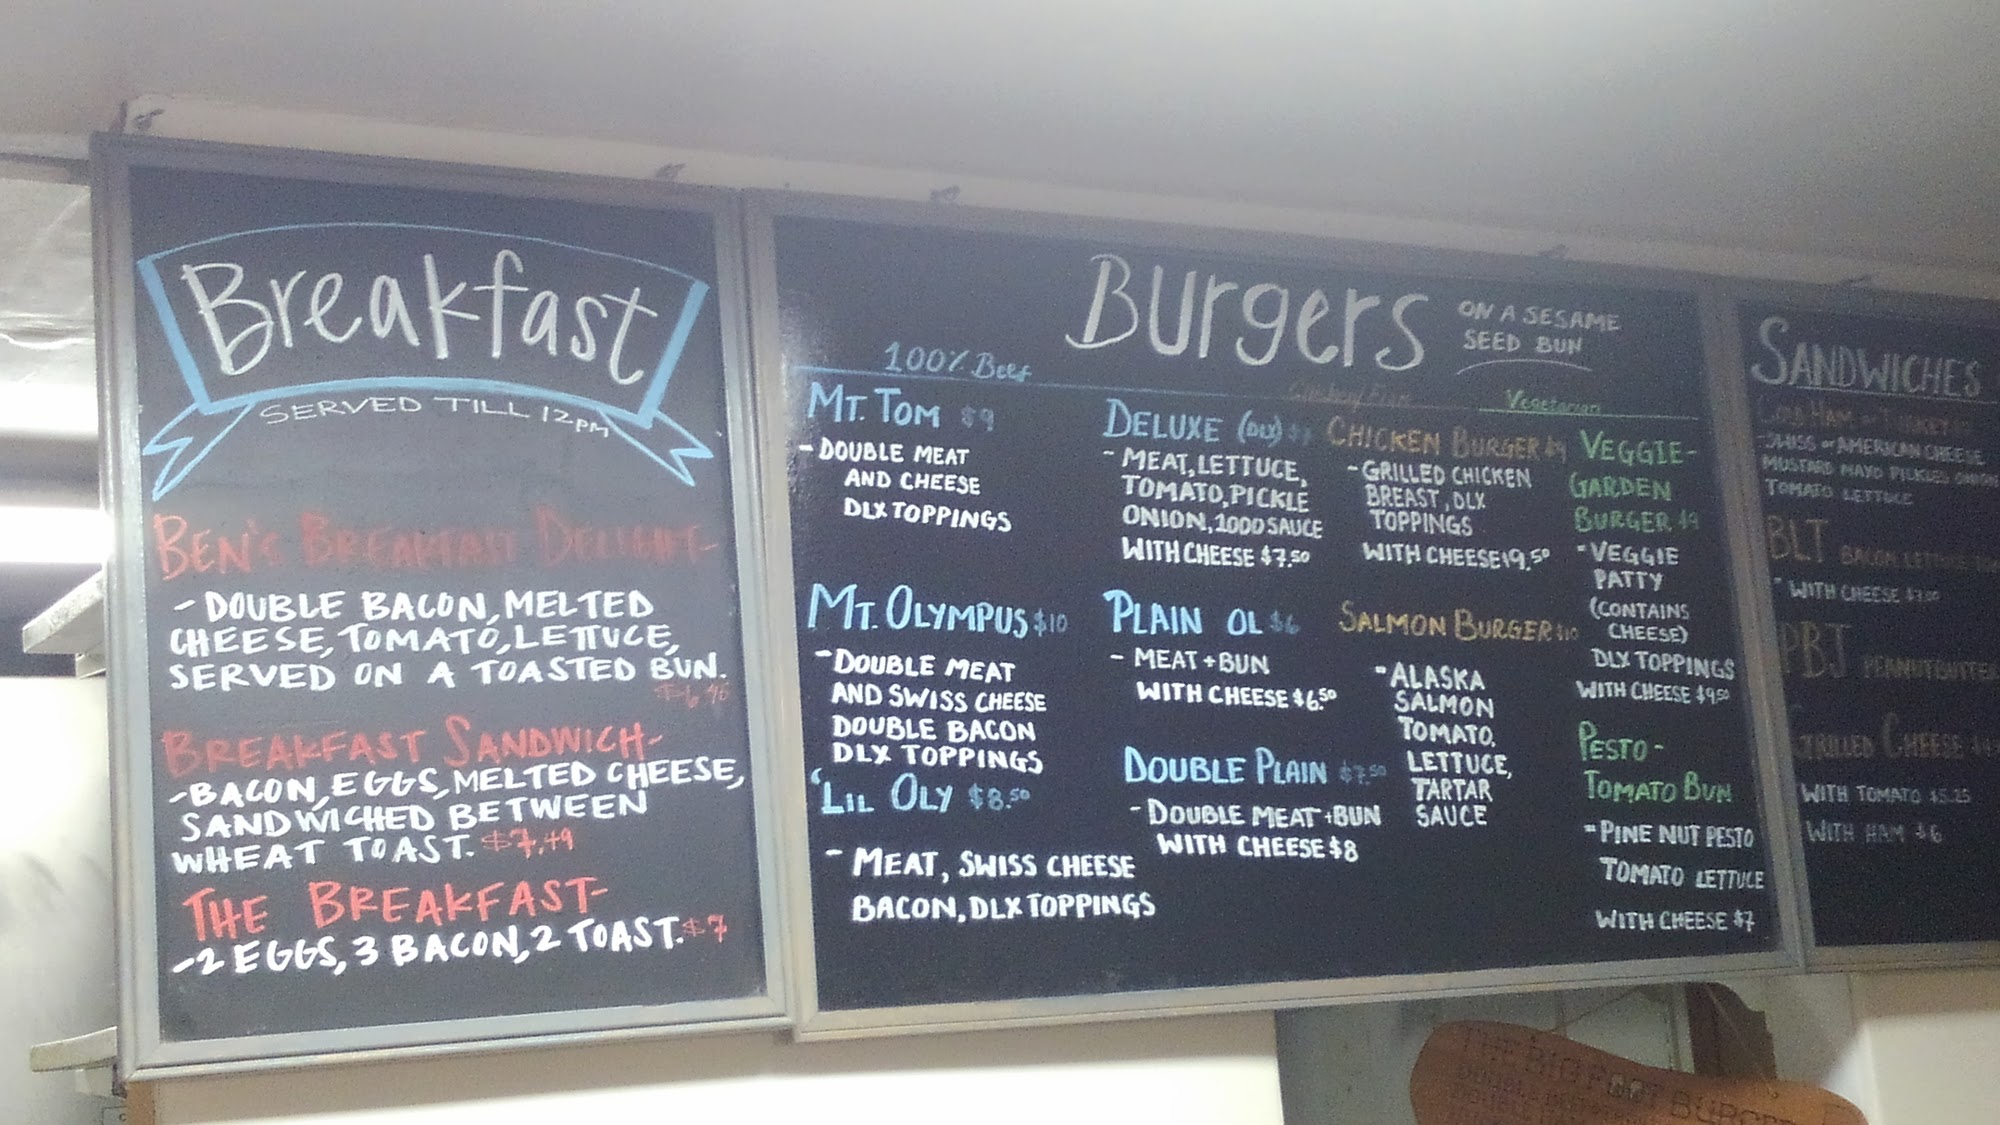 Breakfast
SERVED TILL 12PM
BEN'S BREAKFAST DELIGHT-
- DOUBLE BACON, MELTED
CHEESE, TOMATO, LETTUCE,
SERVED ON A TOASTED BUN.
BREAKFAST SANDWICH-
-BACON, EGGS, MELTED CHEESE,
SANDWICHED BETWEEN
WHEAT TOAST. $7.49
THE BREAKFAST-
-2 EGGS, 3 BACON, 2 TOAST. $7
Burgers
ON A SESAME
SEED BUN
100% Beef
MT. TOM $9
- DOUBLE MEAT
AND CHEESE
DLX TOPPINGS
MT. OLYMPUS $10
- DOUBLE MEAT
AND SWISS CHEESE
DOUBLE BACON
DLX TOPPINGS
'LIL OLY $8.50
- MEAT, SWISS CHEESE
BACON, DLX TOPPINGS
DELUXE (DLX)
- MEAT, LETTUCE,
TOMATO, PICKLE
ONION, 1000 SAUCE
WITH CHEESE $7.50
PLAIN OL $6
- MEAT + BUN
WITH CHEESE $6.50
DOUBLE PLAIN $7.50
- DOUBLE MEAT + BUN
WITH CHEESE $8
CHICKEN BURGER $9
- GRILLED CHICKEN
BREAST, DLX
TOPPINGS
WITH CHEESE $9.50
SALMON BURGER $10
- ALASKA
SALMON
TOMATO,
LETTUCE,
TARTAR
SAUCE
Vegetarian
VEGGIE-
GARDEN
BURGER $9
- VEGGIE
PATTY
(CONTAINS
CHEESE)
DLX TOPPINGS
WITH CHEESE $9.50
PESTO-
TOMATO BUN
- PINE NUT PESTO
TOMATO LETTUCE
WITH CHEESE $7
SANDWICHES
COLD HAM or TURKEY
-SWISS or AMERICAN CHEESE
MUSTARD MAYO PICKLES ONION
TOMATO LETTUCE
BLT BACON LETTUCE
- WITH CHEESE $7.00
PBJ PEANUTBUTTER
GRILLED CHEESE
WITH TOMATO $5.25
WITH HAM $6
THE BIG FOOT BURGER